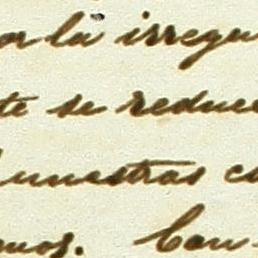 or la irregu
te se reduce
nuestras c
mos. Con